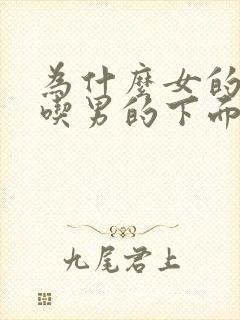 為什麼女的
喫男的下面
九尾君上